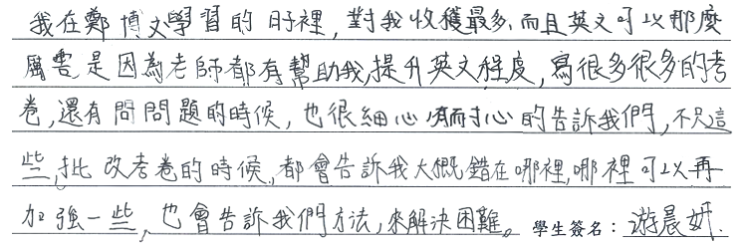 我在鄭博文學習的日子裡,對我收獲最多,而且英文可以那麼
厲害是因為老師都有幫助我,提升英文程度,寫很多很多的考
卷,還有問問題的時候,也很細心、耐心的告訴我們,不只這
些,批改考卷的時候,都會告訴我大概錯在哪裡,哪裡可以再
加強一些,也會告訴我們方法,來解決困難。學生簽名:游晨妍